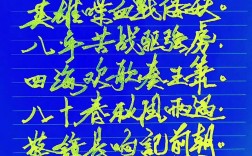 英雄喋血战倭奴
八年苦战驱强虏
四海欢歌奏
八十春秋风雨过
警钟长响记前朝